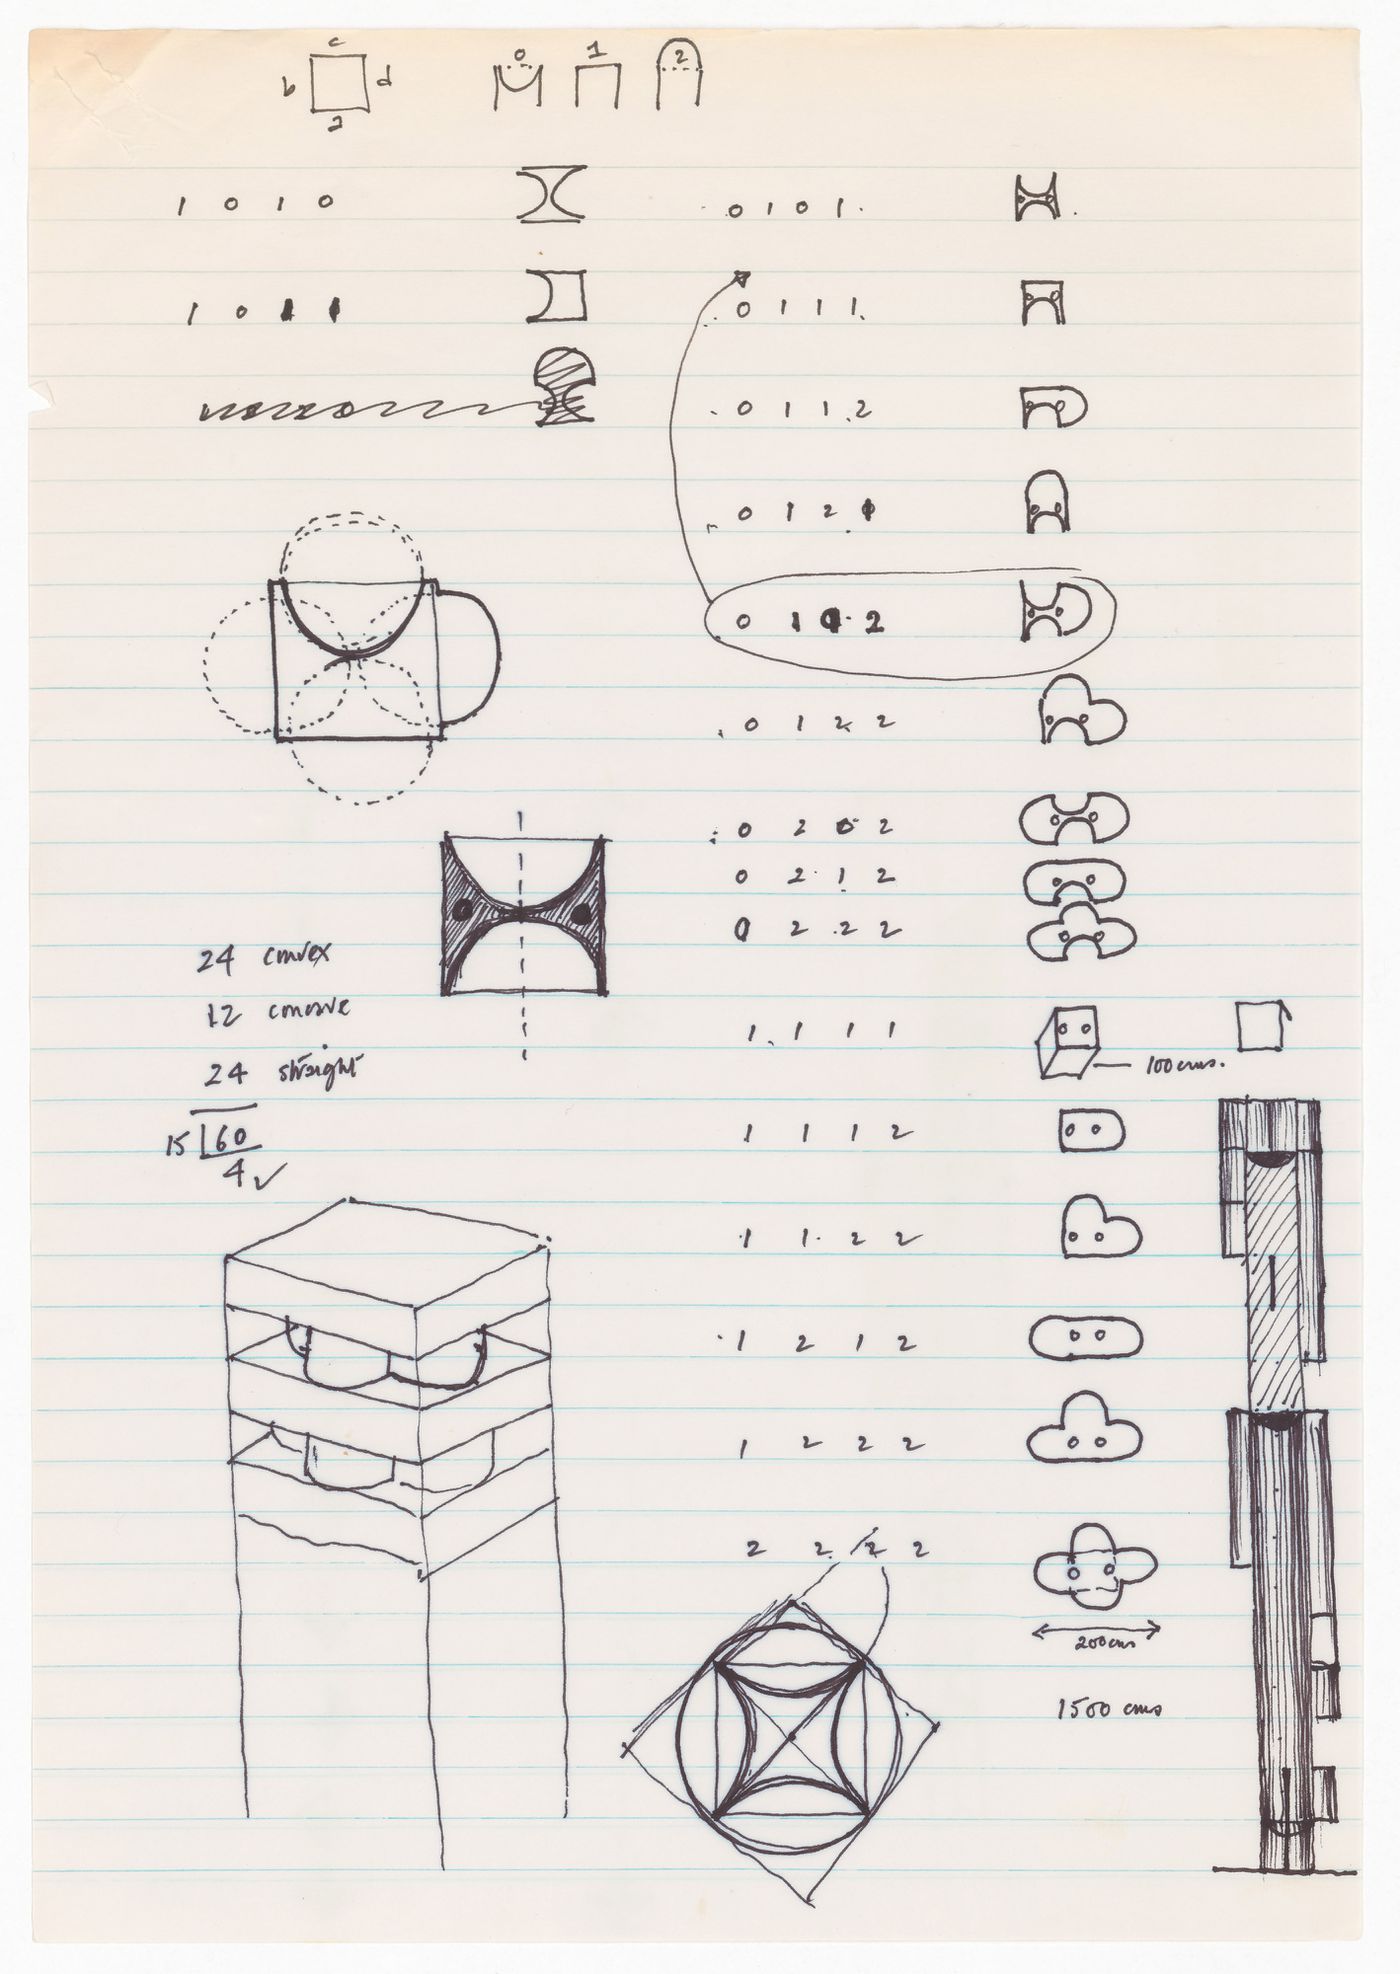 c
b d
a
0 1 2
1 0 1 0
0 1 0 1
1 0 1 1
0 1 1 1
0 1 1 2
0 1 2 1
0 1 0 2
0 1 2 2
0 2 0 2
0 2 1 2
0 2 2 2
24 convex
12 concave
24 straight
15 60
4 ✓
1 1 1 1
100 cms.
1 1 1 2
1 1 2 2
1 2 1 2
1 2 2 2
2 2 2 2
200 cms
1500 cms